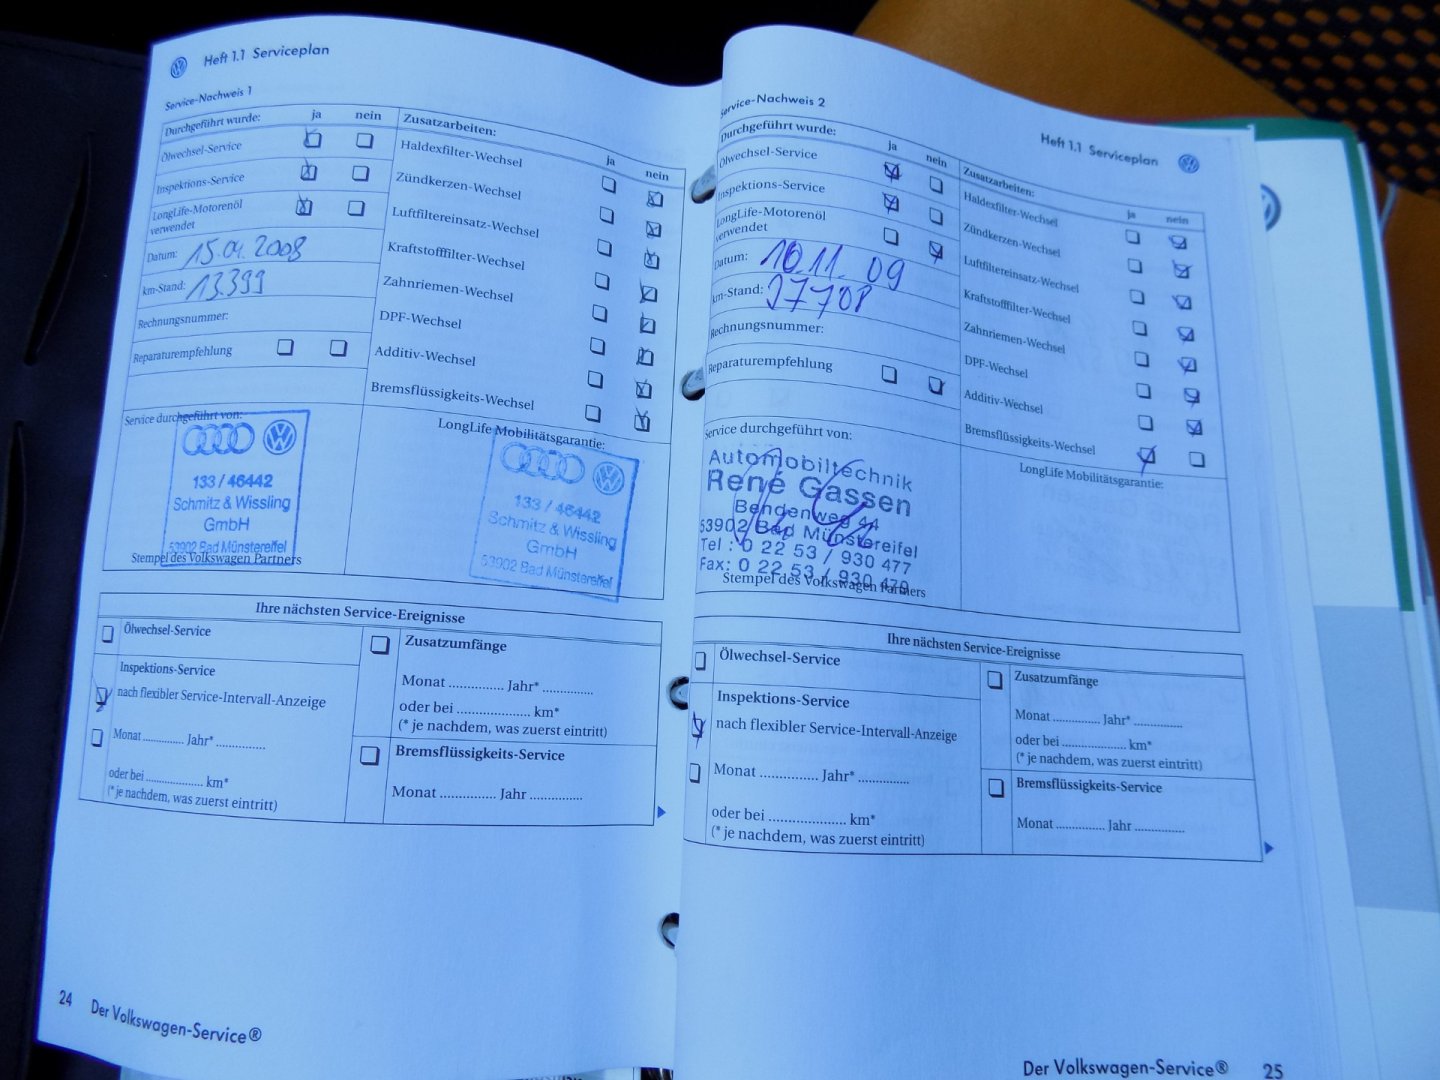 Heft 1.1 Serviceplan
Service-Nachweis 1
Durchgeführt wurde: ja nein
Ölwechsel-Service
Inspektions-Service
LongLife-Motorenöl
verwendet
Datum: 15.04.2008
km-Stand: 13.399
Rechnungsnummer:
Reparaturempfehlung
Zusatzarbeiten:
ja nein
Haldexfilter-Wechsel
Zündkerzen-Wechsel
Luftfiltereinsatz-Wechsel
Kraftstofffilter-Wechsel
Zahnriemen-Wechsel
DPF-Wechsel
Additiv-Wechsel
Bremsflüssigkeits-Wechsel
Service durchgeführt von:
133 / 46442
Schmitz & Wissling
GmbH
53902 Bad Münstereifel
Stempel des Volkswagen Partners
LongLife Mobilitätsgarantie:
133 / 46442
Schmitz & Wissling
GmbH
53902 Bad Münstereifel
Ihre nächsten Service-Ereignisse
Ölwechsel-Service
Inspektions-Service
nach flexibler Service-Intervall-Anzeige
Monat .............. Jahr* ..............
oder bei .................... km*
(* je nachdem, was zuerst eintritt)
Zusatzumfänge
Monat .............. Jahr* ..............
oder bei .................... km*
(* je nachdem, was zuerst eintritt)
Bremsflüssigkeits-Service
Monat .............. Jahr ..............
24 Der Volkswagen-Service®
Heft 1.1 Serviceplan
Service-Nachweis 2
Durchgeführt wurde: ja nein
Ölwechsel-Service
Inspektions-Service
LongLife-Motorenöl
verwendet
Datum: 10.11.09
km-Stand: 27708
Rechnungsnummer:
Reparaturempfehlung
Zusatzarbeiten:
ja nein
Haldexfilter-Wechsel
Zündkerzen-Wechsel
Luftfiltereinsatz-Wechsel
Kraftstofffilter-Wechsel
Zahnriemen-Wechsel
DPF-Wechsel
Additiv-Wechsel
Bremsflüssigkeits-Wechsel
Service durchgeführt von:
Automobiltechnik
René Gassen
Bendenweg 44
53902 Bad Münstereifel
Tel : 0 22 53 / 930 477
Fax: 0 22 53 / 930 479
Stempel des Volkswagen Partners
LongLife Mobilitätsgarantie:
Ihre nächsten Service-Ereignisse
Ölwechsel-Service
Inspektions-Service
nach flexibler Service-Intervall-Anzeige
Monat .............. Jahr* ..............
oder bei .................... km*
(* je nachdem, was zuerst eintritt)
Zusatzumfänge
Monat .............. Jahr* ..............
oder bei .................... km*
(* je nachdem, was zuerst eintritt)
Bremsflüssigkeits-Service
Monat .............. Jahr ..............
Der Volkswagen-Service® 25